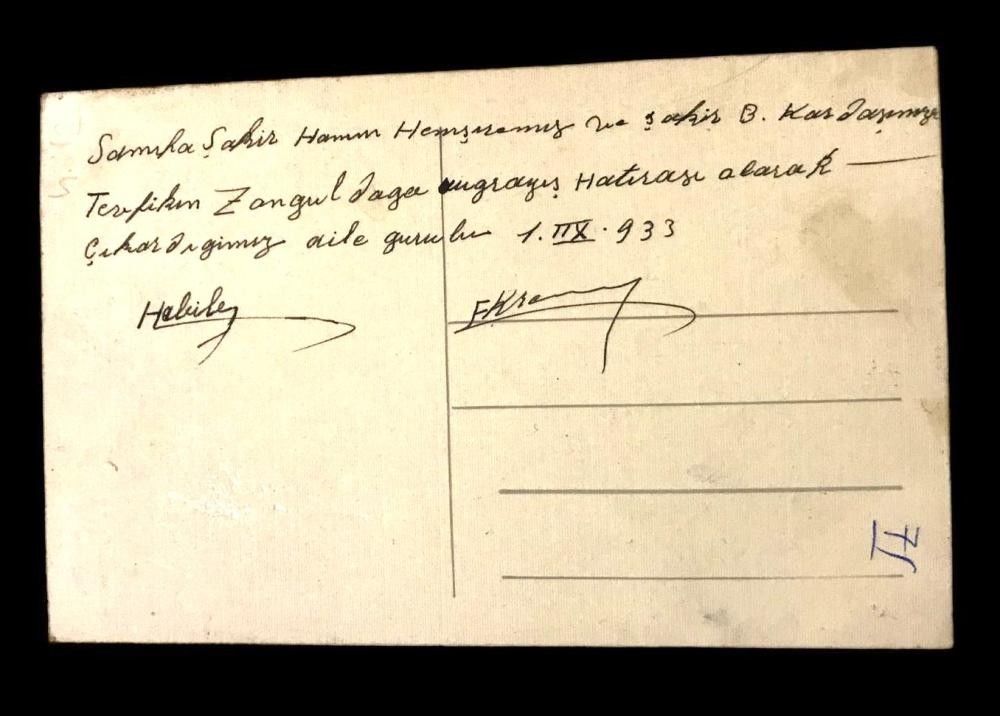 Samıha Şakir Hanım Hemşiremiz ve Şakir B. Kardaşımız
Terefiken Zonguldaga uugrayış Hatırası olarak —
Çıkardıgimiz aile gurubu 1.IIX.933
Habibe EKrem